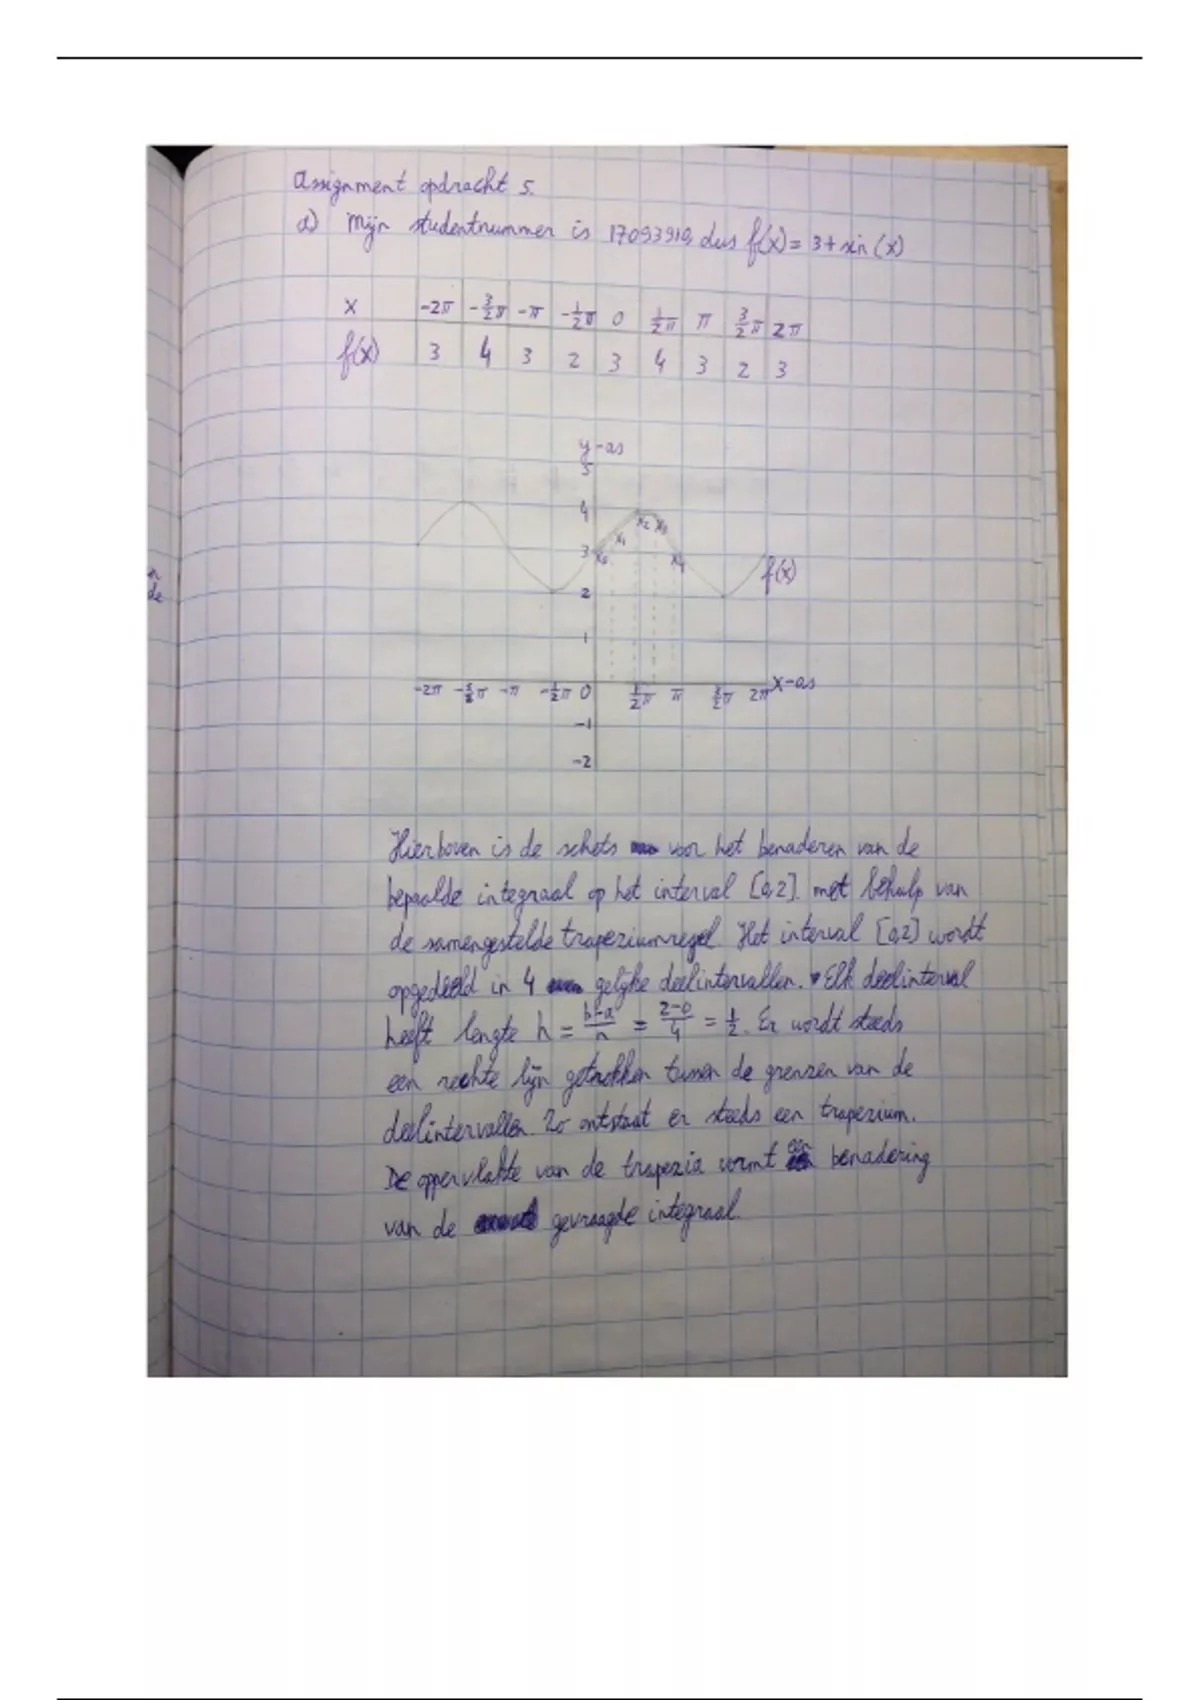 Assignment opdracht 5.
a) Mijn studentnummer is 17093910, dus f(x) = 3 + sin(x)
x -2π -3/2π -π -1/2π 0 1/2π π 3/2π 2π
f(x) 3 4 3 2 3 4 3 2 3
y-as
5
4
x2 x3
x1
3 x0 x4
f(x)
2
1
-2π -3/2π -π -1/2π 0 1/2π π 3/2π 2π x-as
-1
-2
de
Hierboven is de schets voor het benaderen van de
bepaalde integraal op het interval [0,2]. met behulp van
de samengestelde trapeziumregel. Het interval [0,2] wordt
opgedeeld in 4 gelijke deelintervallen. Elk deelinterval
heeft lengte h = b-a/n = 2-0/4 = 1/2. Er wordt steeds
een rechte lijn getrokken tussen de grenzen van de
deelintervallen. Zo ontstaat er steeds een trapezium.
De oppervlakte van de trapezia vormt een benadering
van de gevraagde integraal.